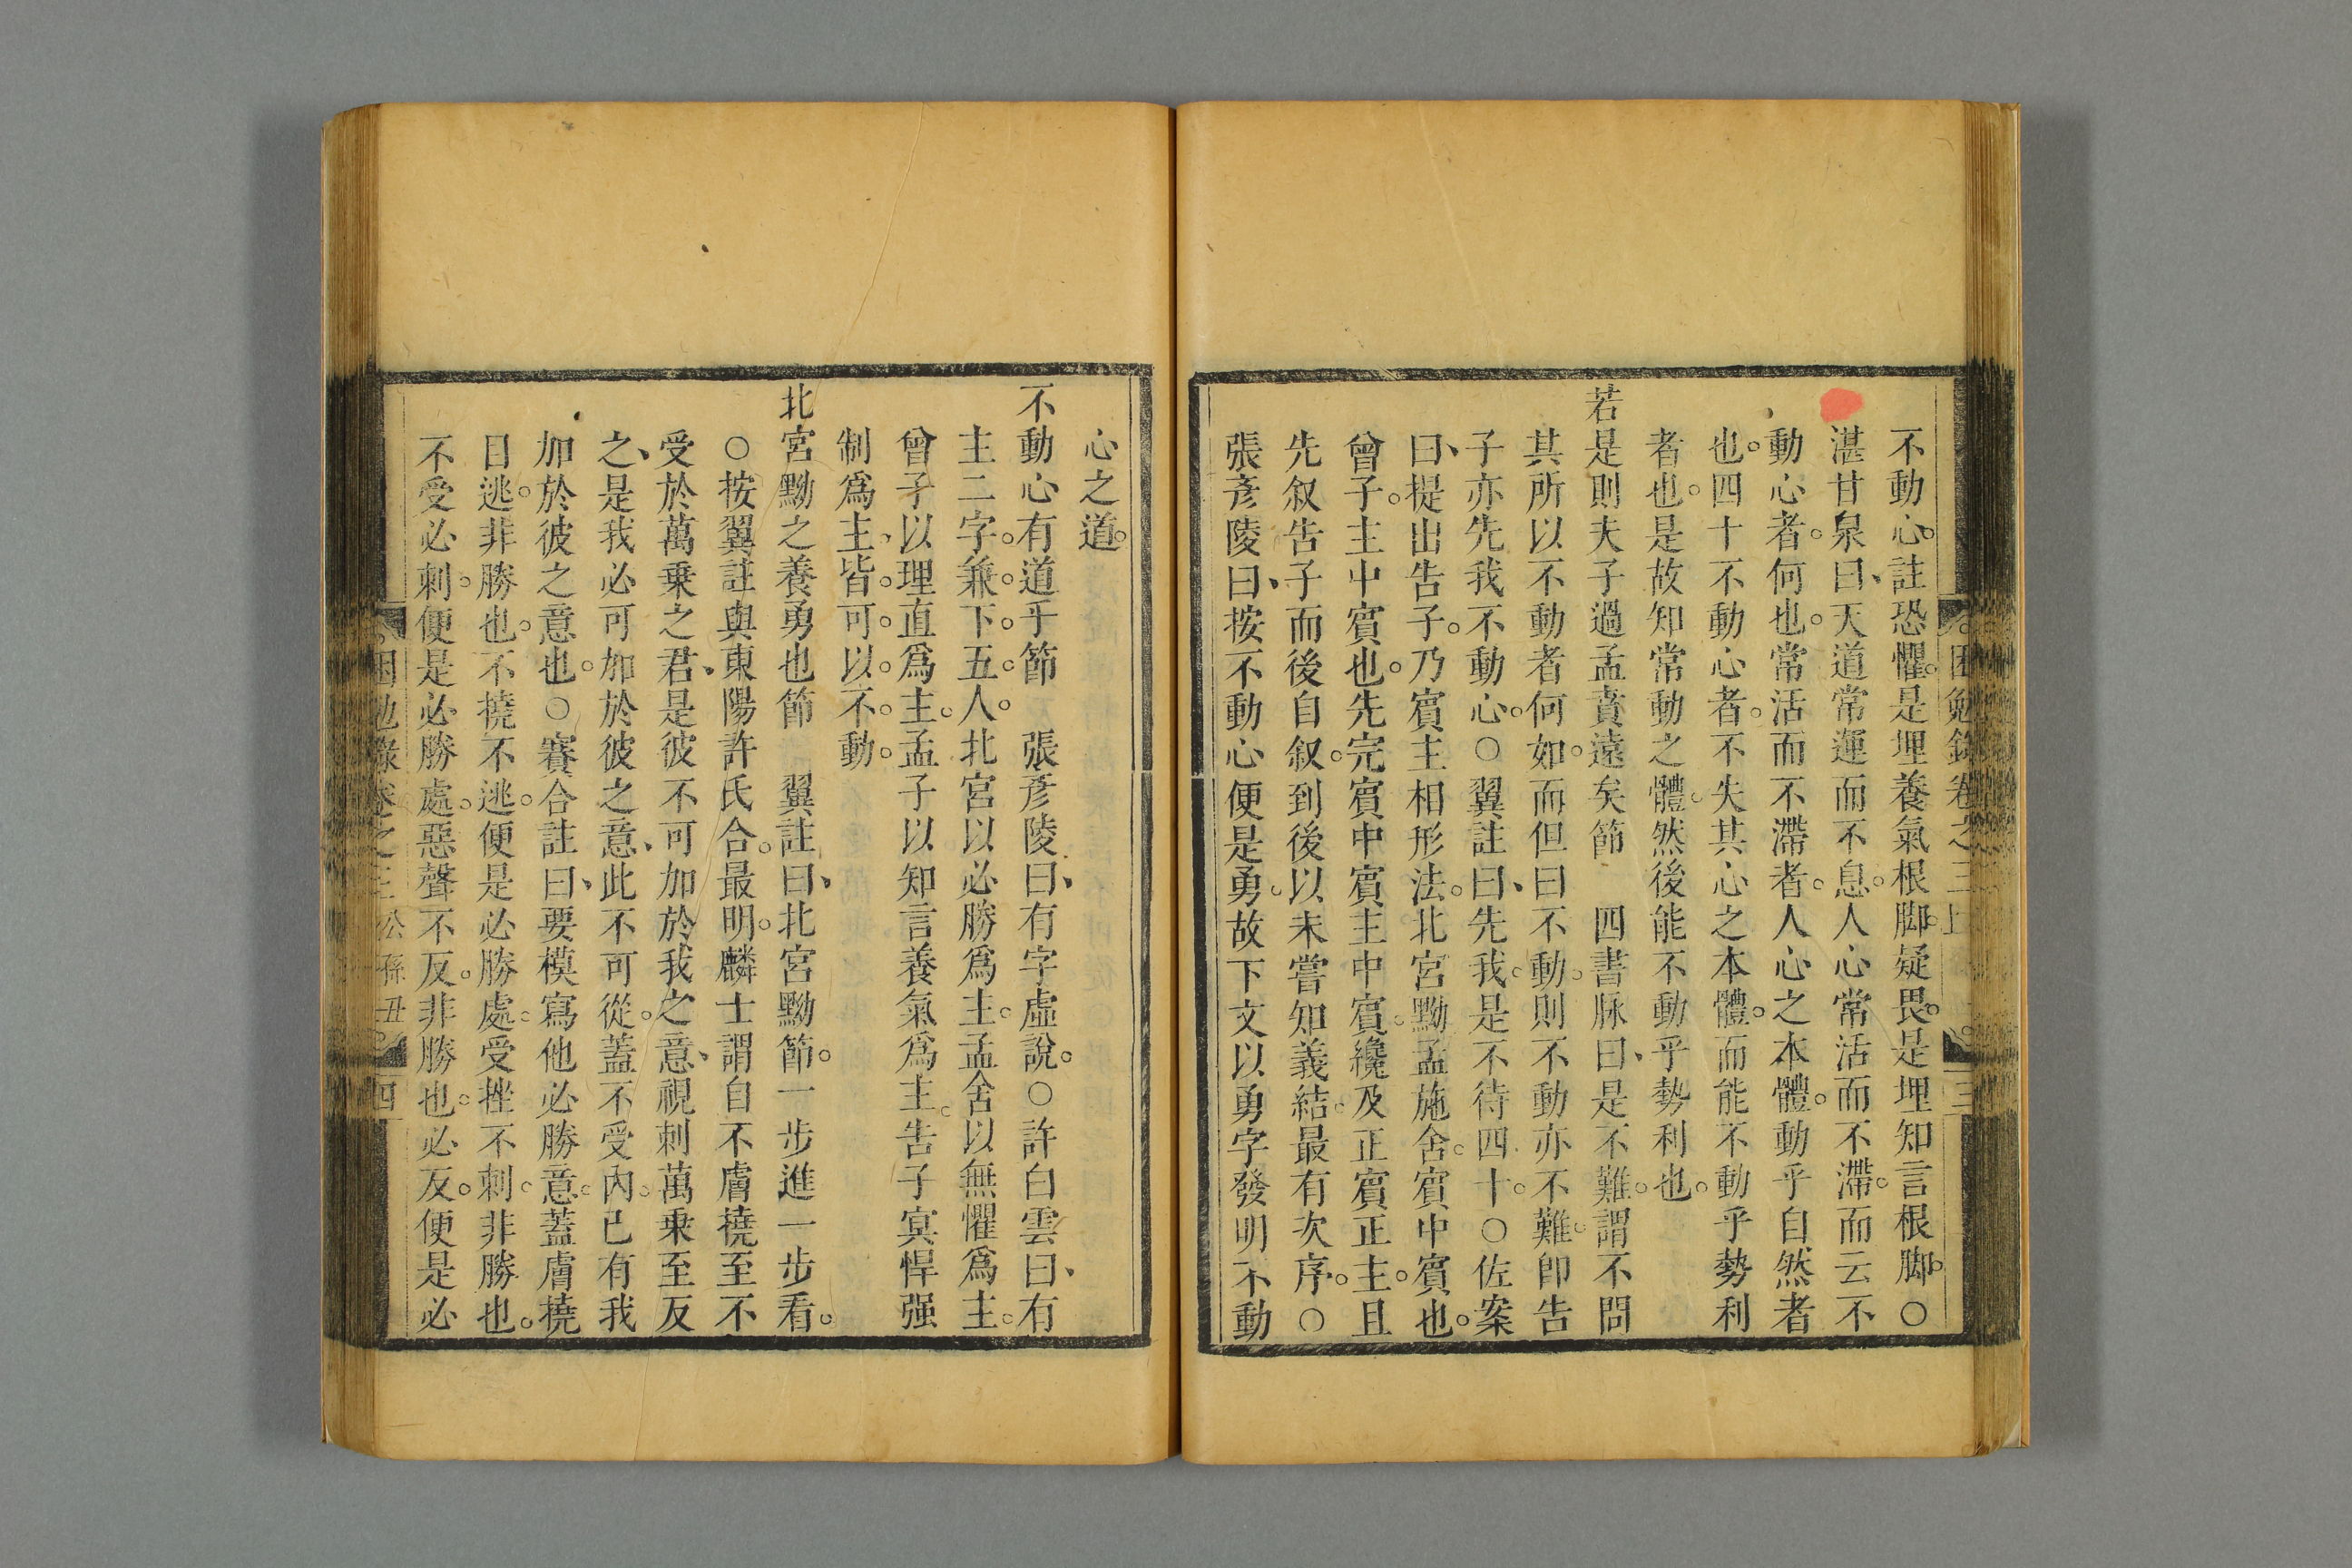 不動心。註恐懼。是埋養氣根脚。疑畏。是埋知言根脚。○
湛甘泉曰、天道常運而不息。人心常活而不滯。而云不
動心者。何也。常活而不滯者。人心之本體。動乎自然者
也。四十不動心者。不失其心之本體。而能不動乎勢利
者也。是故知常動之體。然後能不動乎勢利也。
若是則夫子過孟賁遠矣節　四書脉曰、是不難。謂不問
其所以不動者何如。而但曰不動。則不動亦不難。卽告
子亦先我不動心。○翼註曰、先我。是不待四十。○佐案
曰、提出告子。乃賓主相形法。北宮黝孟施舍。賓中賓也。
曾子。主中賓也。先完賓中賓主中賓。纔及正賓正主。且
先叙告子而後自叙。到後以未嘗知義結。最有次序。○
張彥陵曰、按不動心便是勇。故下文以勇字發明不動
困勉錄卷之三上　三
心之道。
不動心有道乎節　張彥陵曰、有字虛說。○許白雲曰、有
主二字。兼下五人。北宮以必勝爲主。孟舍以無懼爲主。
曾子以理直爲主。孟子以知言養氣爲主。告子㝠悍强
制爲主、皆可以不動。
北宮黝之養勇也節　翼註曰、北宮黝節。一步進一步看。
○按翼註與東陽許氏合。最明。麟士謂自不膚撓至不
受於萬乗之君、是彼不可加於我之意、視刺萬乗至反
之、是我必可加於彼之意、此不可從。蓋不受內。已有我
加於彼之意也。○賽合註曰、要模寫他必勝意。蓋膚撓
目逃。非勝也。不撓不逃。便是必勝處。受挫不刺。非勝也。
不受必刺。便是必勝處。惡聲不反。非勝也。必反。便是必
困勉錄卷之三　公孫丑　四